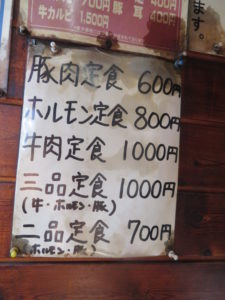 700円
400円
牛カルビ
1,500円
豚耳
400円
ます。
豚肉定食 600円
ホルモン定食 800円
牛肉定食 1000円
三品定食 1000円
(牛・ホルモン・豚)
二品定食 700円
(ホルモン・豚)